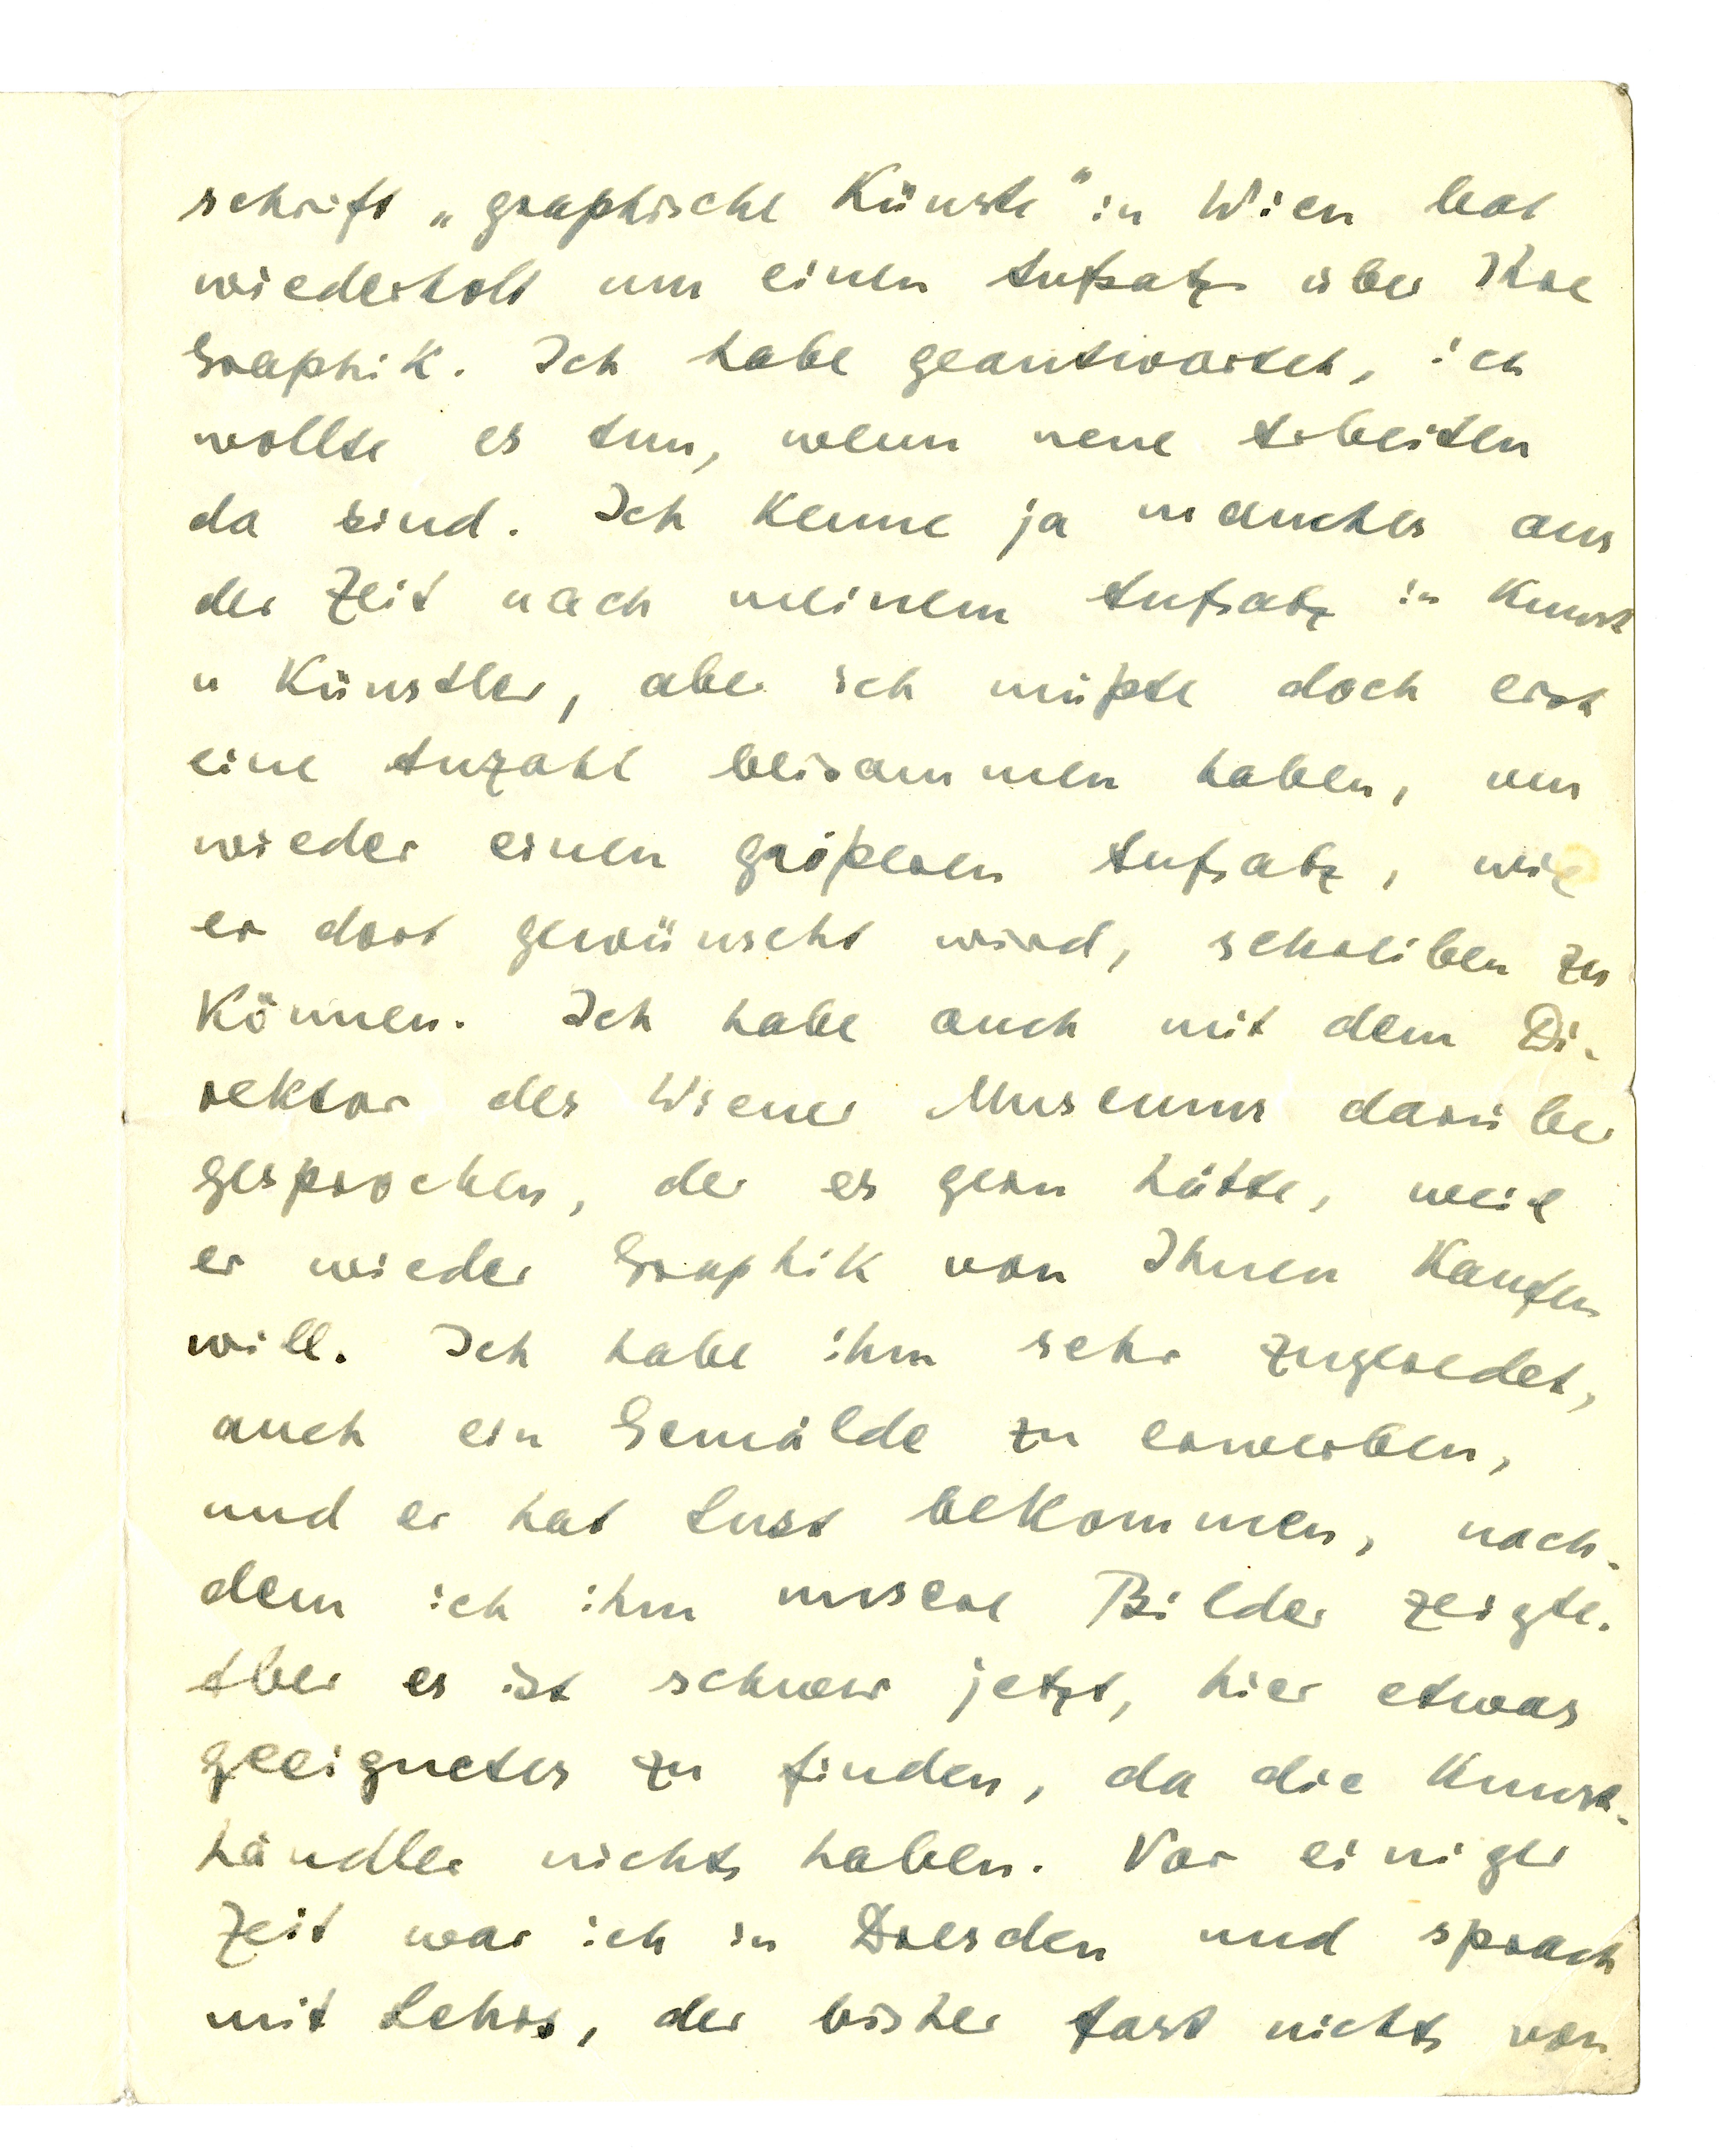 schrift „graphische Künste" in Wien bat
wiederholt um einen Aufsatz über Ihre
Graphik. Ich habe geantwortet, ich
wollte es tun, wenn neue Arbeiten
da sind. Ich kenne ja manches aus
der Zeit nach meinem Aufsatz in Kunst
u Künstler, aber ich müßte doch erst
eine Anzahl beisammen haben, um
wieder einen größeren Aufsatz, wie
er dort gewünscht wird, schreiben zu
können. Ich habe auch mit dem Di-
rektor des Wiener Museums darüber
gesprochen, der es gern hätte, weil
er wieder Graphik von Ihnen kaufen
will. Ich habe ihm sehr zugeredet,
auch ein Gemälde zu erwerben,
und er hat Lust bekommen, nach-
dem ich ihm unsere Bilder zeigte.
Aber es ist schwer jetzt, hier etwas
geeignetes zu finden, da die Kunst-
händler nichts haben. Vor einiger
Zeit war ich in Dresden und sprach
mit Lehrs, der bisher fast nichts von